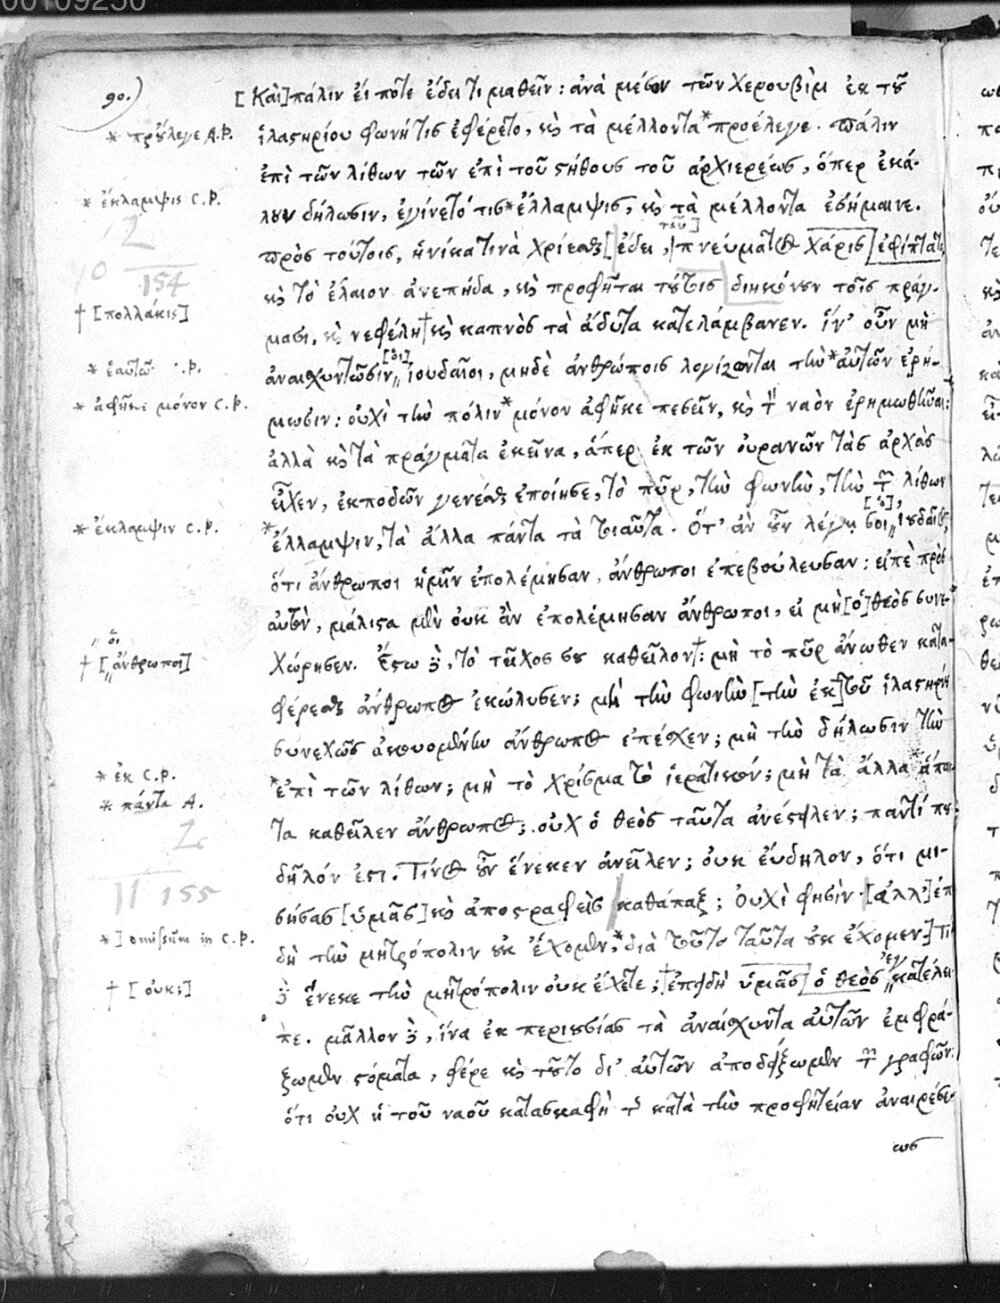 00109250
90.)
[Καὶ] πάλιν εἴ ποτε ἔδει τι μαθεῖν: ἀνὰ μέσον τῶν Χερουβὶμ ἐκ τοῦ
* προὔλεγε A.P.
ἱλαστηρίου φωνή τις ἐφέρετο, καὶ τὰ μέλλοντα* προέλεγε. πάλιν
ἐπὶ τῶν λίθων τῶν ἐπὶ τοῦ στήθους τοῦ ἀρχιερέως, ὅπερ ἐκά-
* ἔκλαμψις C.P.
λουν δήλωσιν, ἐγίνετό τις* ἔλλαμψις, καὶ τὰ μέλλοντα ἐσήμαινε.
πρὸς τούτοις, ἡνίκα τινὰ χρίεσθαι [ἔδει, τοῦ] πνεύματος χάρις [ἐφίπτατο,
154
καὶ τὸ ἔλαιον ἀνεπήδα, καὶ προφῆται τούτοις διηκόνουν τοῖς πράγ-
† [πολλάκις]
μασι, καὶ νεφέλη† καὶ καπνὸς τὰ ἄδυτα κατελάμβανεν. ἵν' οὖν μὴ
* ἑαυτῶν .P.
ἀναισχυντῶσιν [οἱ] ἰουδαῖοι, μηδὲ ἀνθρώποις λογίζωνται τὴν* αὐτῶν ἐρή-
* ἀφῆκε μόνον C.P.
μωσιν: οὐχὶ τὴν πόλιν* μόνον ἀφῆκε πεσεῖν, καὶ τὸν ναὸν ἐρημωθῆναι:
ἀλλὰ καὶ τὰ πράγματα ἐκεῖνα, ἅπερ ἐκ τῶν οὐρανῶν τὰς ἀρχὰς
εἶχεν, ἐκποδὼν γενέσθαι ἐποίησε, τὸ πῦρ, τὴν φωνὴν, τὴν τῶν λίθων
* ἔκλαμψιν C.P.
*ἔλλαμψιν, τὰ ἄλλα πάντα τὰ τοιαῦτα. Ὅτ' ἂν οὖν λέγῃ σοι [ὁ] ἰουδαῖος,
ὅτι ἄνθρωποι ἡμῖν ἐπολέμησαν, ἄνθρωποι ἐπεβούλευσαν: εἰπὲ πρὸς
αὐτὸν, μάλιστα μὲν οὐκ ἂν ἐπολέμησαν ἄνθρωποι, εἰ μὴ [ὁ] θεὸς συνε-
† [οἱ ἄνθρωποι]
χώρησεν. Ἔστω δὲ, τὸ τεῖχος σου καθεῖλον†: μὴ τὸ πῦρ ἄνωθεν κατα-
φέρεσθαι ἄνθρωπος ἐκώλυσεν; μὴ τὴν φωνὴν [τὴν ἐκ] τοῦ ἱλαστηρίου
συνεχῶς ἀκουομένην ἄνθρωπος ἐπέσχεν; μὴ τὴν δήλωσιν τὴν
* ἐκ C.P.
*ἐπὶ τῶν λίθων; μὴ τὸ χρίσμα τὸ ἱερατικόν; μὴ τὰ ἄλλα* ἅπαν-
* πάντα A.
τα καθεῖλεν ἄνθρωπος; οὐχ ὁ θεὸς ταῦτα ἀνέστειλεν; παντί που
δῆλόν ἐστι. Τίνος οὖν ἕνεκεν ἀνεῖλεν; οὐκ εὔδηλον, ὅτι μι-
11 155
σήσας [ὑμᾶς] καὶ ἀποστραφεὶς καθάπαξ; Οὐχὶ φησὶν [ἀλλ'] ἐπει-
* ] omissum in C.P.
δὴ τὴν μητρόπολιν οὐκ ἔχομεν,* διὰ τοῦτο ταῦτα οὐκ ἔχομεν.] Τί-
† [οὐκ;]
δὲ ἕνεκε τὴν μητρόπολιν οὐκ ἔχετε; † ἐπειδὴ ὑμᾶς ὁ θεὸς ἐγκατέλι-
πε. μᾶλλον δὲ, ἵνα ἐκ περιουσίας τὰ ἀναίσχυντα αὐτῶν ἐμφρά-
ξωμεν στόματα, φέρε καὶ τοῦτο δι' αὐτῶν ἀποδείξωμεν τῶν γραφῶν:
ὅτι οὐχ ἡ τοῦ ναοῦ κατασκαφὴ τὰ κατὰ τὴν προφητείαν ἀναιρέσε-
ως